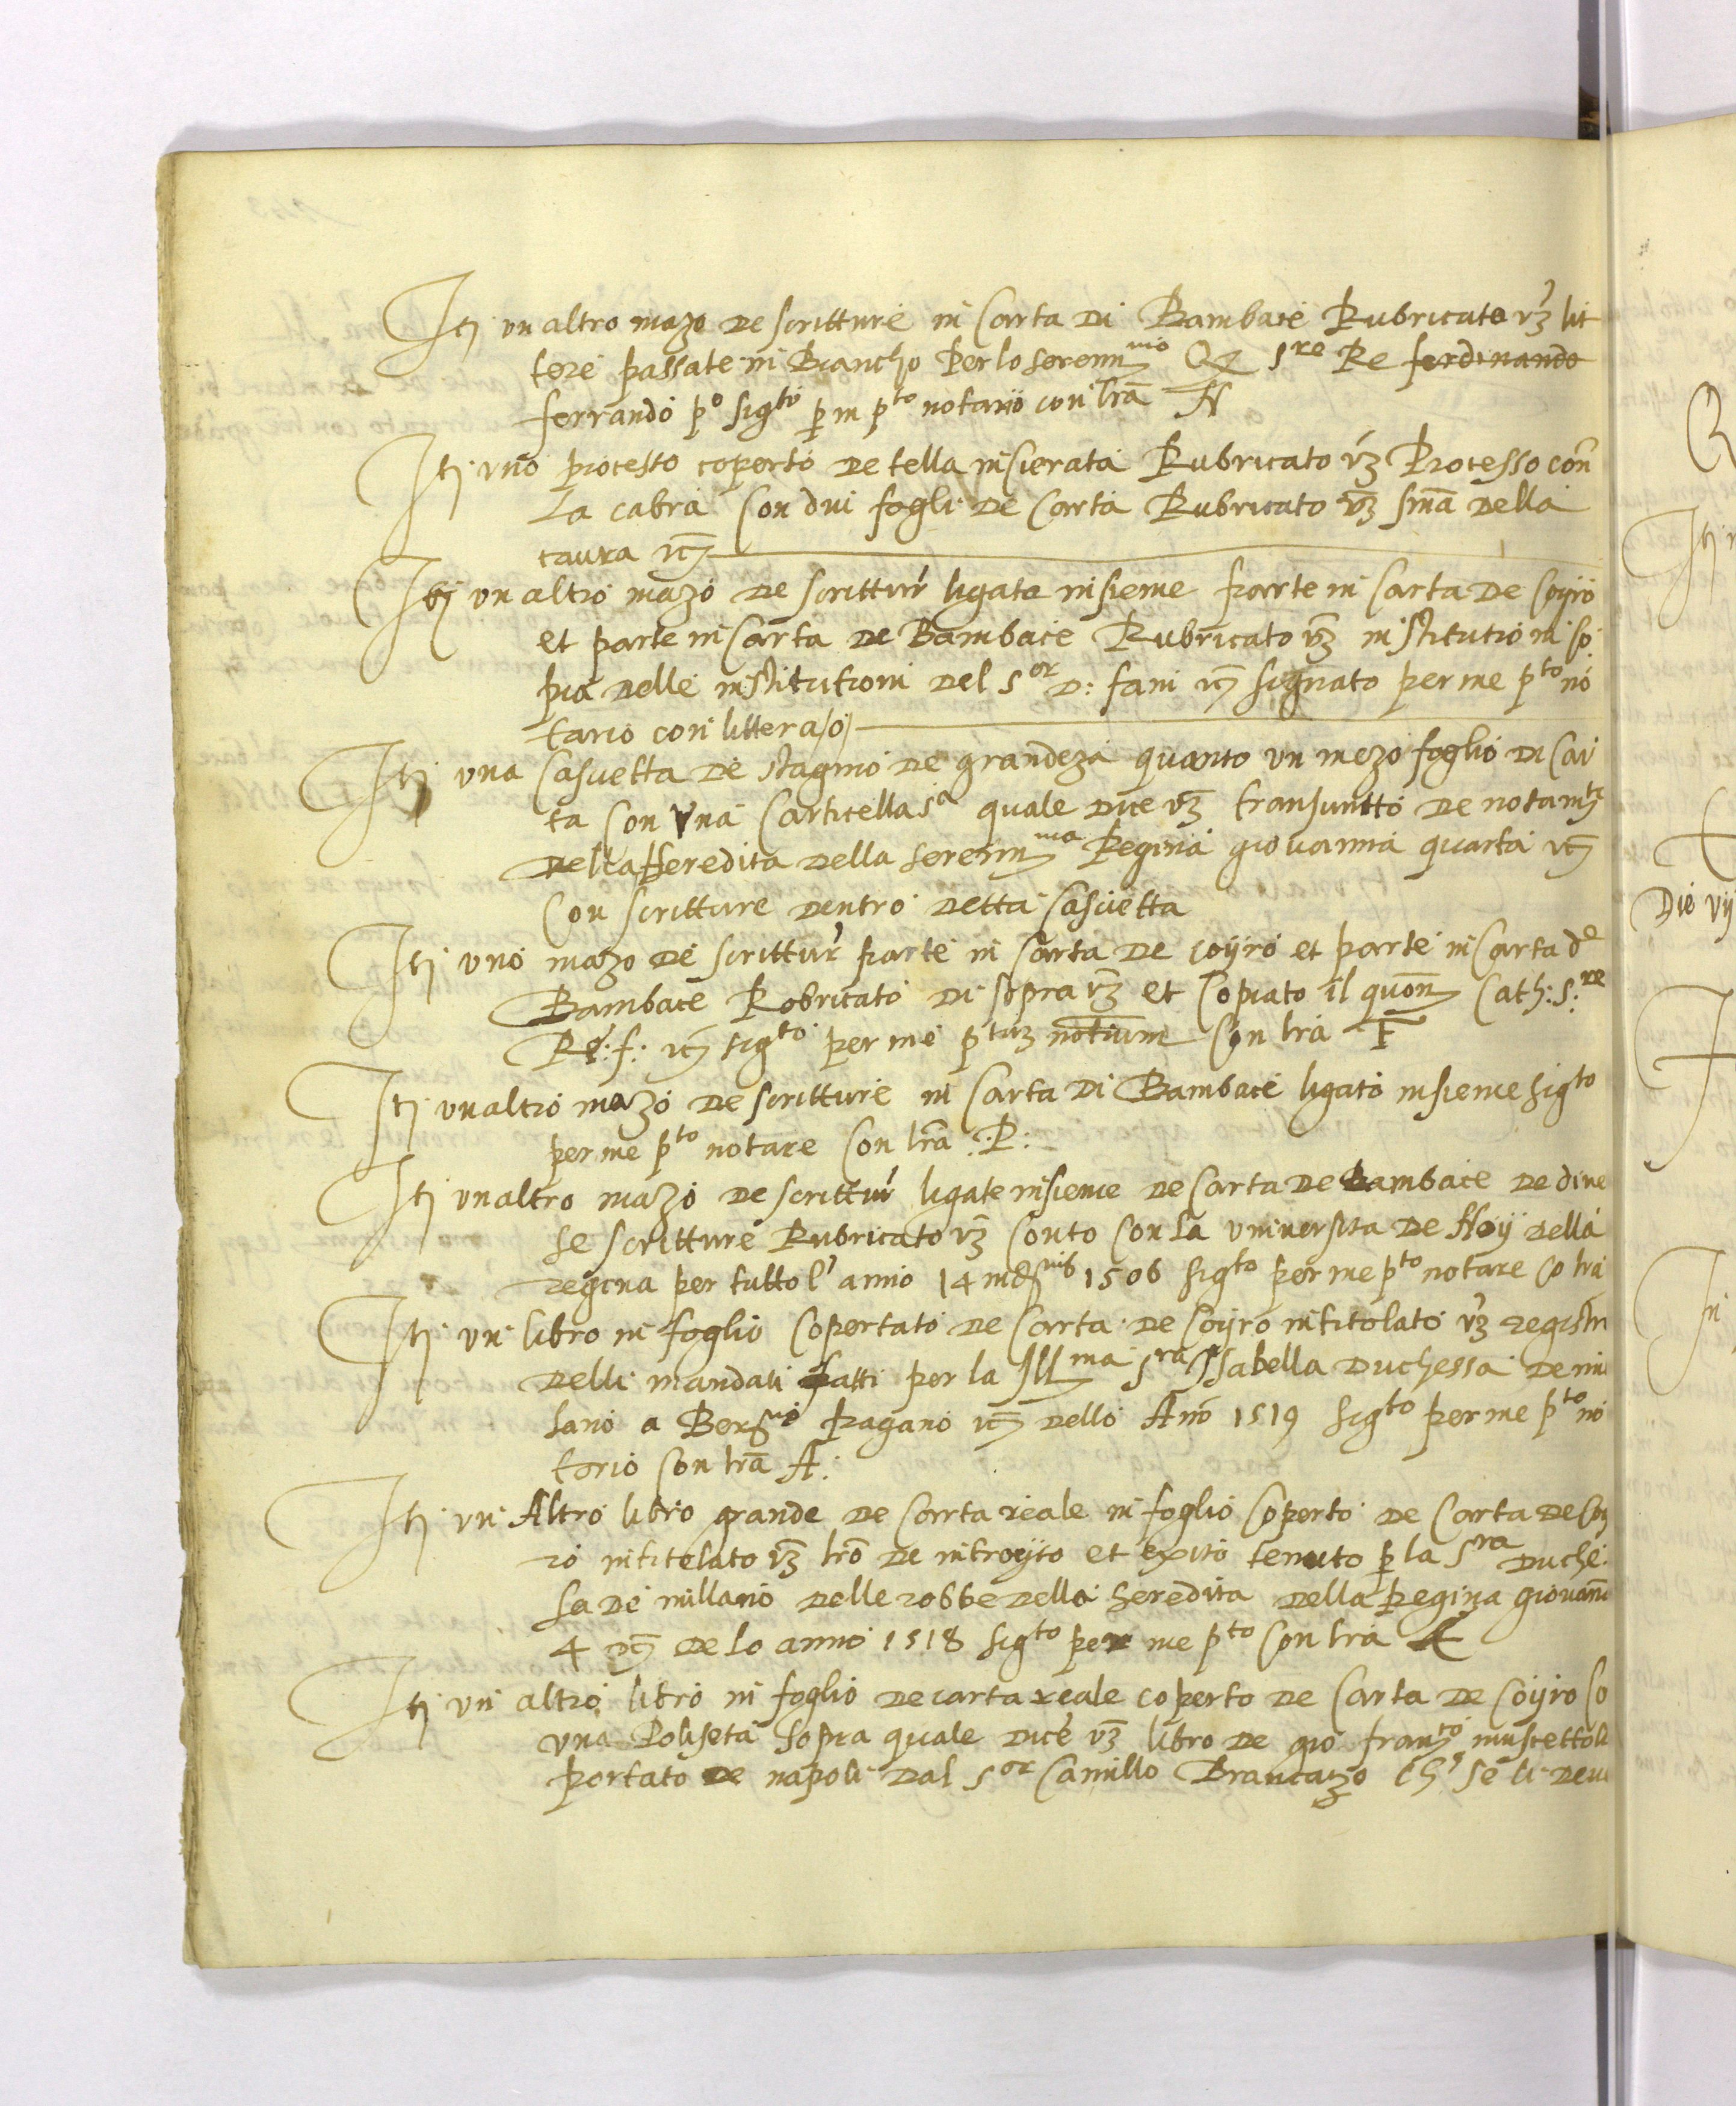 Itj un altro mazo de scritture in Carta di Bambace Rubricato vz lit
tere passate in Biancho Per lo serenmo Qz Sre Re ferdinando
ferrando po sigto p m pto notario con lra N
Itj uno processo coperto de tella insierata Rubricato vz Processo con
La cabra Con dui fogli de Carta Rubricato vz sma della
taura etc
Itj un altro mazo de scrittur ligata insieme parte in Carta de Coyro
et parte in Carta de Bambace Rubricato vz institutioni co
pia delle institutioni del Sor D: fani etc signato per me pto no
tario con littera /o/
Itj una Casuetta de stagnio de grandeza quanto un mezo foglio di Car
ta Con una Carticella sa quale dice vz transuntto de notamto
della Heredita della Serenma Regina giovanna quarta etc
Con scritture dentro detta Casuetta
Itj uno mazo de scrittur parte in Carta de coyro et parte in Carta de
Bambace Robricato di sopra vz et Copiato il quon Cath: S:re
Re: f: etc sigto per me ptuz notium Con lra F
Itj un altro mazo de scritture in Carta di Bambace ligato insieme sigto
per me pto notare Con lra :P:
Itj un altro mazo de scrittur ligate insieme de Carta de Bambace de dive
se scritture Rubricato vz Conto Con la universita de Hoy della
regina per tutto l' anno 14 indnis 1506 sigto per me pto notare Co lra
Itj un libro in foglio Copertato de Carta de Coyro intitolato vz registri
delli mandati fatti per la Illma Sra Isabella Duchessa de mi
lano a Bernno Pagano etc dello Ano 1519 sigto per me pto no
tario Con lra A:
Itj un Altro libro grande de Carta reale in foglio Coperto de Carta de Coy
ro intitolato vz lro de introyto et exito tenuto p la Sra Duche
sa de millano delle robbe della heredita della Regina giovana
4 etc de lo anno 1518 sigto per me pto Con lra
Itj un altro libro in foglio de carta reale coperto de Carta de Coyro Co
una Poliseta Sopra quale dice vz libro de gio franco muscettola
portato de napoli dal Sor Camillo Brancazo Ch' se li deve